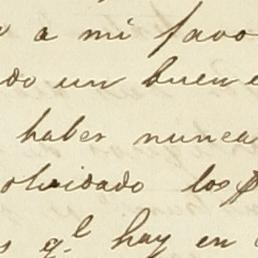 a mi favo
do un buen
haber nunca
olvidado los
q.l hay en